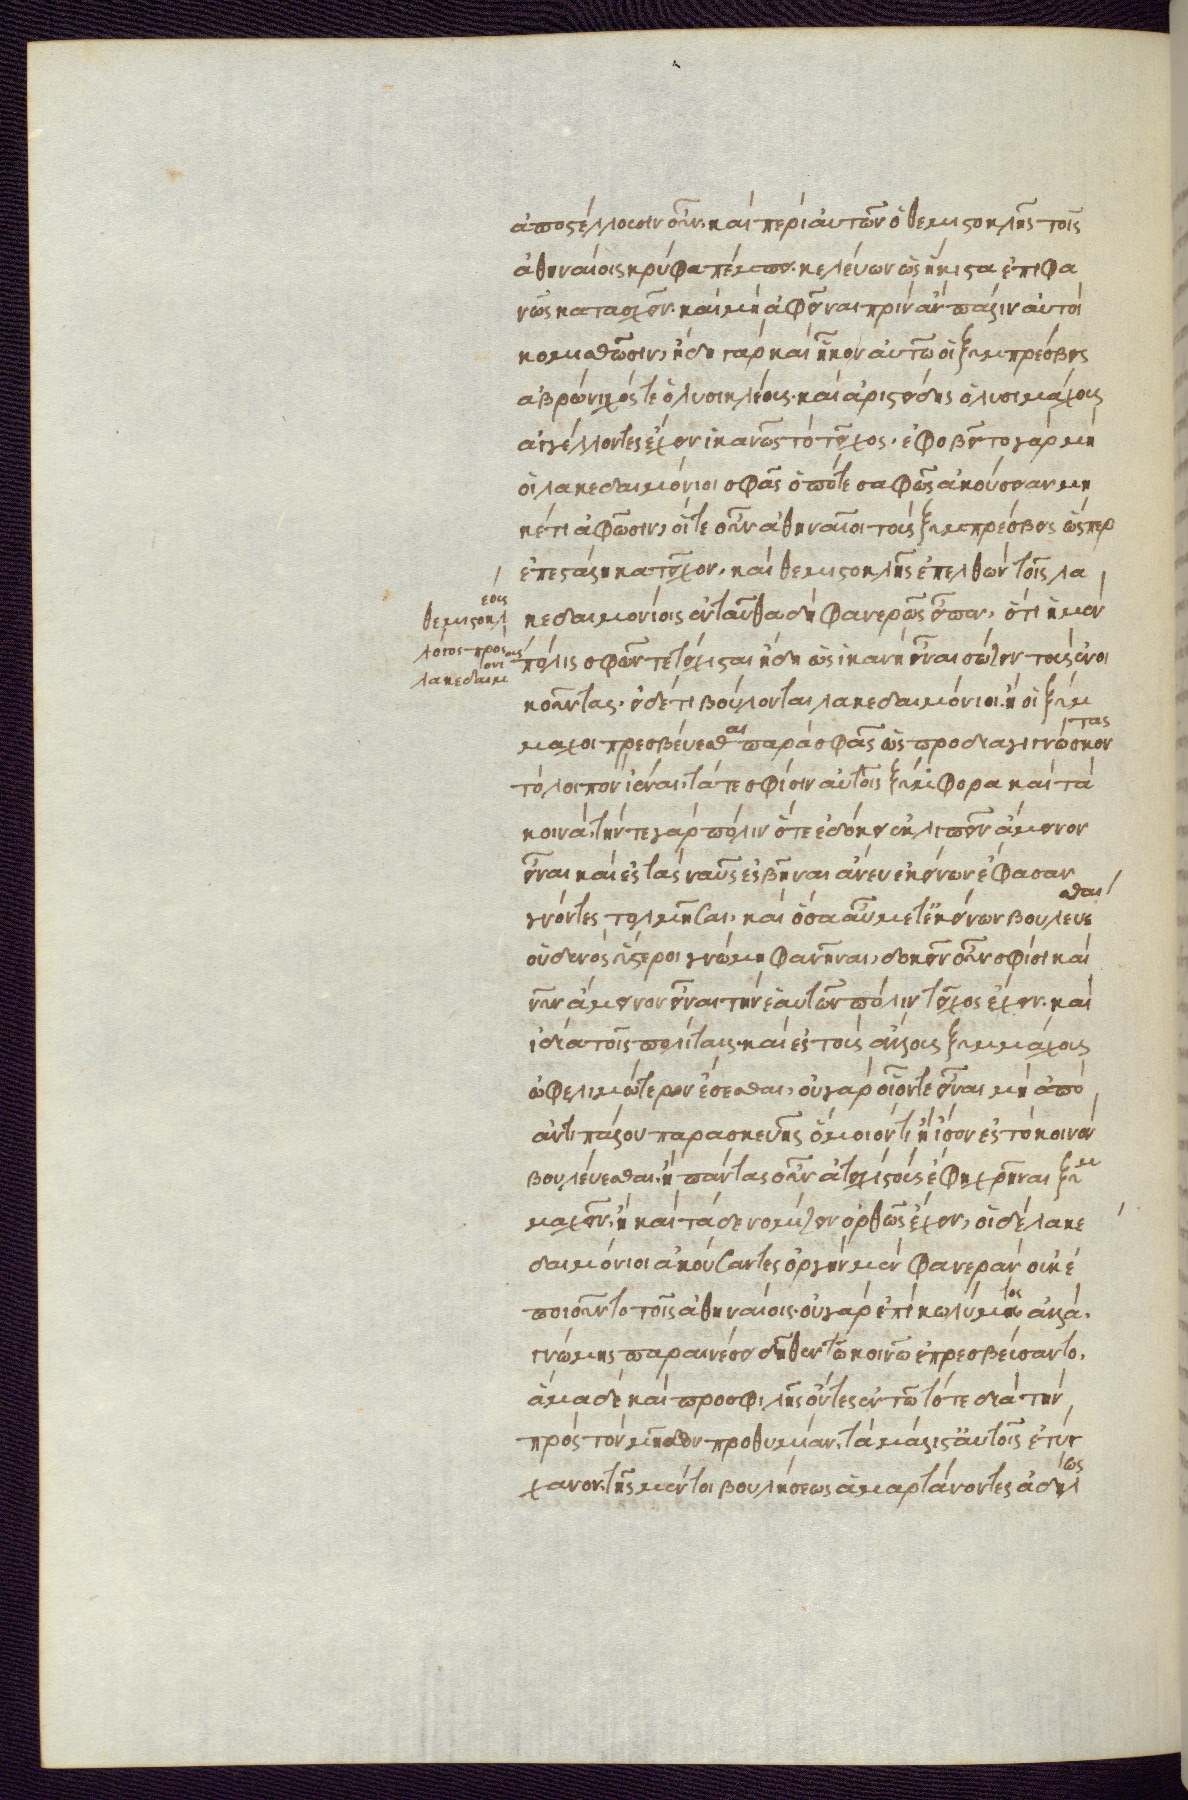 ἀποστέλλουσιν οὖν. καὶ περὶ αὐτῶν ὁ θεμιστοκλῆς τοῖς
ἀθηναίοις κρύφα πέμπει. κελεύων ὡς ἥκιστα ἐπιφα
νῶς κατασχεῖν. καὶ μὴ ἀφεῖναι πρὶν ἂν πάλιν αὐτοὶ
κομισθῶσιν, ἤδη γὰρ καὶ ἧκον αὐτῶ οἱ ξυμπρέσβεις
αβρώνιχός τε ὁ λυσικλέους. καὶ ἀριστείδης ὁ λυσιμάχους
ἀγγέλλοντες ἔχειν ἱκανῶς τὸ τεῖχος. ἐφοβεῖτο γὰρ μὴ
οἱ λακεδαιμόνιοι σφᾶς ὁπότε σαφῶς ἀκούσειαν μη
κέτι ἀφῶσιν, οἵ τε οὖν ἀθηναῖοι τοὺς ξυμπρέσβεις ὥσπερ
ἐπεστάλη κατεῖχον. καὶ θεμιστοκλῆς ἐπελθὼν τοῖς λα
θεμιστοκλέους
λόγος πρὸς τοὺς
λακεδαιμονίους
κεδαιμονίοις ἐνταῦθα δὴ φανερῶς εἶπεν, ὅτι ἡ μὲν
πόλις σφῶν τετείχισται ἤδη ὡς ἱκανὴ εἶναι σώζειν τοὺς ἐνοι
κοῦντας. εἰ δέ τι βούλονται λακεδαιμόνιοι. ἢ οἱ ξύμ
μαχοι πρεσβεύεσθαι παρὰ σφᾶς ὡς προδιαγιγνώσκοντας
τὸ λοιπὸν ἰέναι. τά τε σφίσιν αὐτοῖς ξύμφορα καὶ τὰ
κοινά. τήν τε γὰρ πόλιν ὅτε ἐδόκει ἐκλιπεῖν ἄμεινον
εἶναι καὶ ἐς τὰς ναῦς ἐσβῆναι ἄνευ ἐκείνων ἔφασαν
γνόντες τολμῆσαι. καὶ ὅσα αὖ μετ' ἐκείνων βουλεύεσθαι
οὐδενὸς ὕστεροι γνώμη φανῆναι, δοκεῖν οὖν σφίσι καὶ
νῦν ἄμεινον εἶναι τὴν ἑαυτῶν πόλιν τεῖχος ἔχειν. καὶ
ἰδία τοῖς πολίταις. καὶ ἐς τοὺς ἄλλους ξυμμάχους
ὠφελιμώτερον ἔσεσθαι, οὐ γὰρ οἷόν τε εἶναι μὴ ἀπὸ
ἀντιπάλου παρασκευῆς ὅμοιόν τι ἢ ἴσον ἐς τὸ κοινὸν
βουλεύεσθαι. ἢ πάντας οὖν ἀτειχίστους ἔφη χρῆναι ξυμ
μαχεῖν. ἢ καὶ τάδε νομίζειν ὀρθῶς ἔχειν, οἱ δὲ λακε
δαιμόνιοι ἀκούσαντες ὀργὴν μὲν φανερὰν οὐκ ἐ
ποιοῦντο τοῖς ἀθηναίοις. οὐ γὰρ ἐπὶ κωλύμητος ἀλλὰ.
γνώμης παραινέσει δῆθεν τῶ κοινῶ ἐπρεσβεύσαντο,
ἅμα δὲ καὶ προσφιλεῖς ὄντες ἐν τῶ τότε διὰ τὴν
πρὸς τὸν μῆδον προθυμίαν. τὰ μάλιστ' αὐτοῖς ἐτύγ
χανον. τῆς μέντοι βουλήσεως ἁμαρτάνοντες ἀδήλως